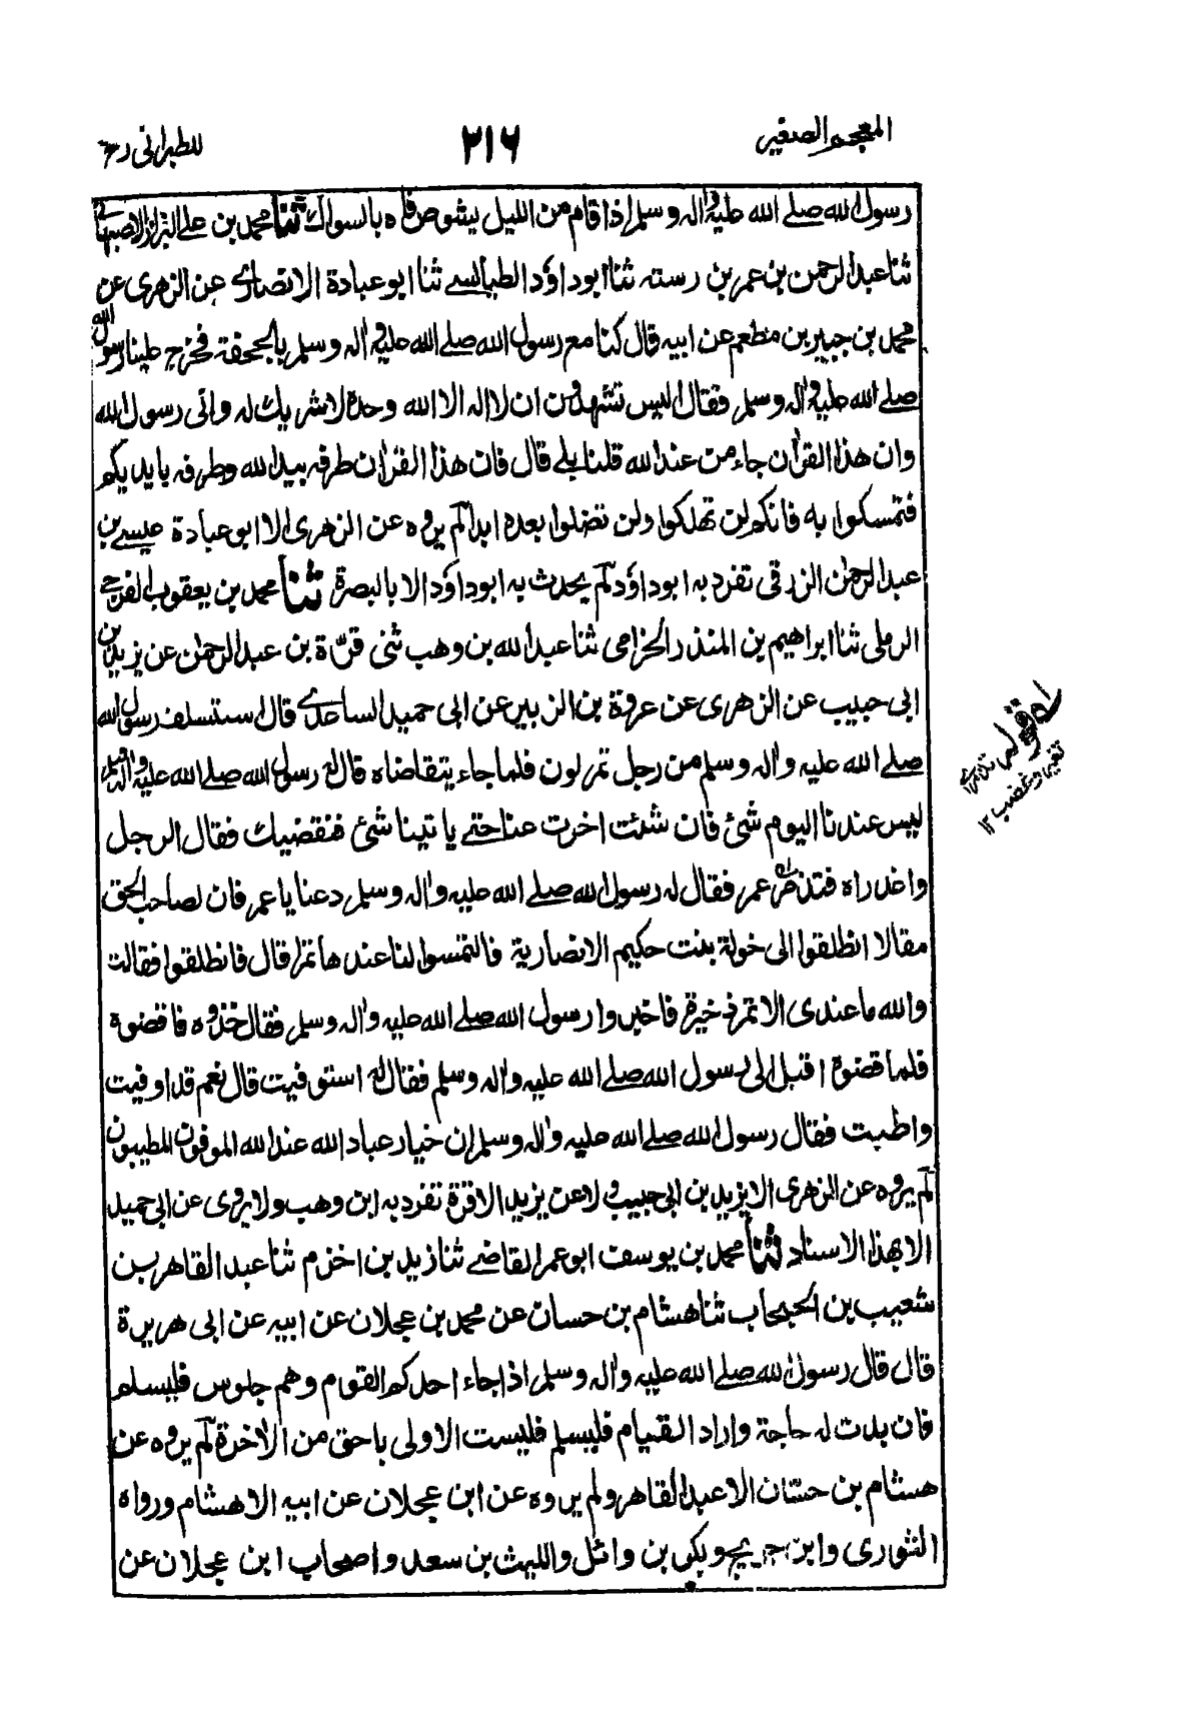 المعجم الصغير
٢١٦
للطبرانی رح
رسول الله صلے الله عليه واله وسلم اذا قام من الليل يشوص فاه بالسواك ثنا محمد بن علے البزار الاصبهانے
ثنا عبد الرحمن بن عمر بن رسته ثنا ابو داؤد الطيالسے ثنا ابو عبادة الانصارے عن الزهری عن
محمد بن جبير بن مطعم عن ابيه قال كنا مع رسول الله صلے الله عليه واله وسلم بالجحفة فخرج علينا رسول الله
صلے الله عليه واله وسلم فقال اليس تشهدون ان لا اله الا الله وحده لا شريك له وانی رسول الله
وان هذا القرآن جاء من عند الله قلنا بلے قال فان هذا القرآن طرفه بيد الله وطرفه بايديكم
فتمسكوا به فانكم لن تهلكوا ولن تضلوا بعده ابدا لم يروه عن الزهری الا ابو عبادة عيسے بن
عبد الرحمٰن الزرقی تفرد به ابو داؤد لم يحدث به ابو داؤد الا بالبصرة ثنا محمد بن يعقوب الفرجے
الرملی ثنا ابراهيم بن المنذر الحزامی ثنا عبد الله بن وهب ثنی قرّة بن عبد الرحمٰن عن يزيد بن
ابی حبيب عن الزهری عن عروة بن الزبير عن ابی حميد الساعدے قال استسلف رسول الله
صلے الله عليه واله وسلم من رجل تمر لون فلما جاء يتقاضاه قال له رسول الله صلے الله عليه واله وسلم
ليس عندنا اليوم شئ فان شئت اخرت عنا حتے ياتينا شئ فنقضيك فقال الرجل
واغدراه فتذمر له عمر فقال له رسول الله صلے الله عليه واله وسلم دعنا يا عمر فان لصاحب الحق
مقالا انطلقوا الی خولة بنت حكيم الانصارية فالتمسوا لنا عندها تمرا قال فانطلقوا فقالت
والله ما عندی الا تمر ذخيرة فاخبروا رسول الله صلے الله عليه واله وسلم فقال خذوه فاقضوه
فلما قضوه اقبل الی رسول الله صلے الله عليه واله وسلم فقال له استوفيت قال نعم قد اوفيت
واطبت فقال رسول الله صلے الله عليه واله وسلم ان خيار عباد الله عند الله الموفون المطيبون
لم يروه عن الزهری الا يزيد بن ابی حبيب ولا عن يزيد الا قرة تفرد به ابن وهب ولا يروی عن ابی حميد
الا بهذا الاسناد ثنا محمد بن يوسف ابو عمر القاضے ثنا زيد بن اخزم ثنا عبد القاهر بن
شعيب بن الحبحاب ثنا هشام بن حسان عن محمد بن عجلان عن ابيه عن ابی هريرة
قال قال رسول الله صلے الله عليه واله وسلم اذا جاء احدكم القوم وهم جلوس فليسلم
فان بدت له حاجة واراد القيام فليسلم فليست الاولی باحق من الآخرة لم يروه عن
هشام بن حسّان الا عبد القاهر ولم يروه عن ابن عجلان عن ابيه الا هشام ورواه
الثوری وابن جريج وبكر بن وائل والليث بن سعد واصحاب ابن عجلان عن
له قوله
وغضب ١٢